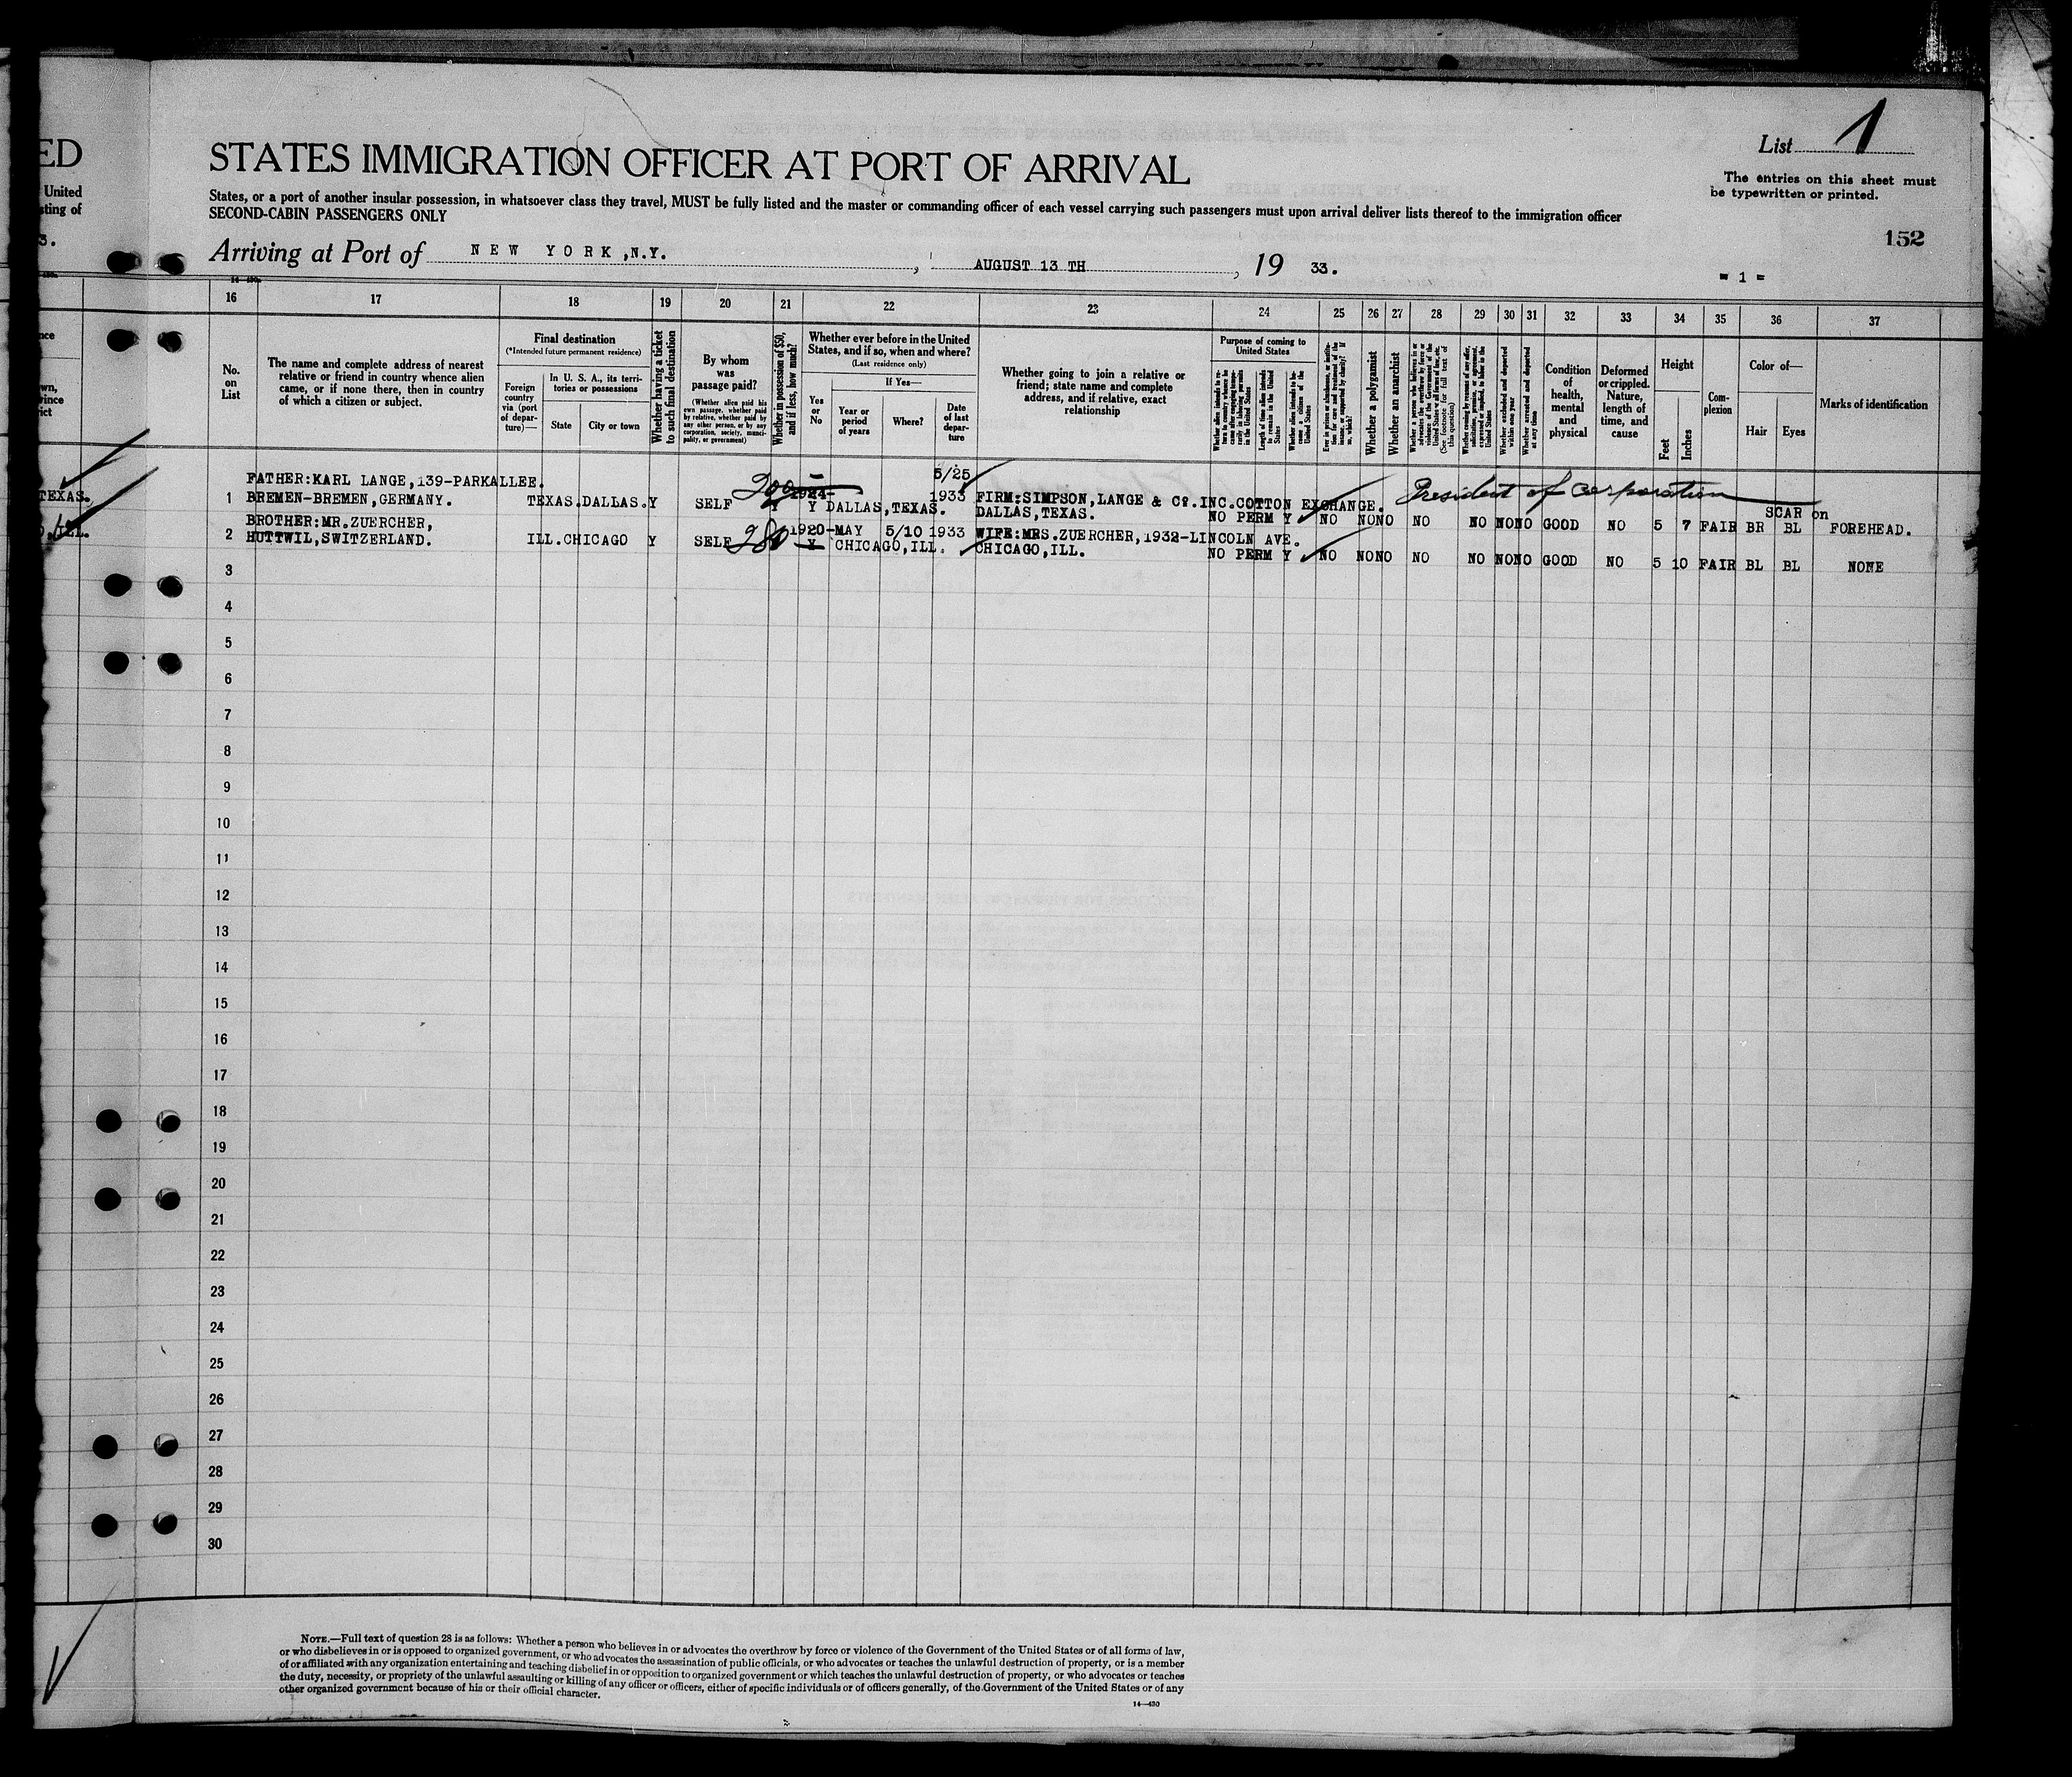 ED
United
sting of
3.
STATES IMMIGRATION OFFICER AT PORT OF ARRIVAL
List 1
The entries on this sheet must
be typewritten or printed.
States, or a port of another insular possession, in whatsoever class they travel, MUST be fully listed and the master or commanding officer of each vessel carrying such passengers must upon arrival deliver lists thereof to the immigration officer
SECOND-CABIN PASSENGERS ONLY
152
Arriving at Port of NEW YORK,N.Y. , AUGUST 13 TH , 19 33.
= 1 =
16 17 18 19 20 21 22 23 24 25 26 27 28 29 30 31 32 33 34 35 36 37
No.
on
List
The name and complete address of nearest
relative or friend in country whence alien
came, or if none there, then in country
of which a citizen or subject.
Final destination
(*Intended future permanent residence)
Foreign
country
via (port
of depar-
ture)—
In U. S. A., its terri-
tories or possessions
State
City or town
Whether having a ticket
to such final destination
By whom
was
passage paid?
(Whether alien paid his
own passage, whether paid
by relative, whether paid by
any other person, or by any
corporation, society, munici-
pality, or government)
Whether in possession of $50,
and if less, how much?
Whether ever before in the United
States, and if so, when and where?
(Last residence only)
Yes
or
No
If Yes—
Year or
period
of years
Where?
Date
of last
depar-
ture
Whether going to join a relative or
friend; state name and complete
address, and if relative, exact
relationship
Purpose of coming to
United States
Length of time alien intends
to remain in the United
States
Whether alien intends to be-
come a citizen of the
United States
Whether a polygamist
Whether an anarchist
Whether excluded and deported
within one year
Whether arrested and deported
at any time
Condition
of
health,
mental
and
physical
Deformed
or crippled.
Nature,
length of
time, and
cause
Height
Feet
Inches
Com-
plexion
Color of—
Hair
Eyes
Marks of identification
TEXAS.
FATHER:KARL LANGE,139-PARKALLEE.
5/25
President of Corporation
1 BREMEN-BREMEN,GERMANY. TEXAS.DALLAS.Y SELF 200 Y 1924- Y DALLAS,TEXAS. 1933 FIRM:SIMPSON,LANGE & Co.INC.COTTON EXCHANGE.
DALLAS,TEXAS. NO PERM Y NO NONO NO NO NONO GOOD NO 5 7 FAIR BR BL SCAR on
FOREHEAD.
ILL.
BROTHER:MR.ZUERCHER,
2 HUTTWIL,SWITZERLAND. ILL.CHICAGO Y SELF 280 1920-MAY Y CHICAGO,ILL. 5/10 1933 WIFE:MRS.ZUERCHER,1932-LINCOLN AVE.
CHICAGO,ILL. NO PERM Y NO NONO NO NO NONO GOOD NO 5 10 FAIR BL BL NONE
3
4
5
6
7
8
9
10
11
12
13
14
15
16
17
18
19
20
21
22
23
24
25
26
27
28
29
30
NOTE.—Full text of question 28 is as follows: Whether a person who believes in or advocates the overthrow by force or violence of the Government of the United States or of all forms of law,
or who disbelieves in or is opposed to organized government, or who advocates the assassination of public officials, or who advocates or teaches the unlawful destruction of property, or is a member
of or affiliated with any organization entertaining and teaching disbelief in or opposition to organized government or which teaches the unlawful destruction of property, or who advocates or teaches
the duty, necessity, or propriety of the unlawful assaulting or killing of any officer or officers, either of specific individuals or of officers generally, of the Government of the United States or of any
other organized government because of his or their official character.
14—430